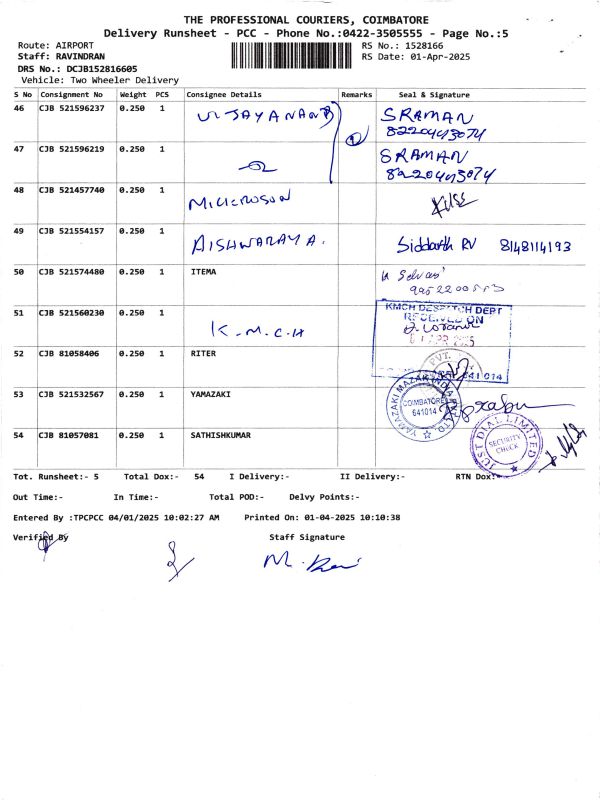 THE PROFESSIONAL COURIERS, COIMBATORE
Delivery Runsheet - PCC - Phone No.:0422-3505555 - Page No.:5
Route: AIRPORT RS No.: 1528166
Staff: RAVINDRAN RS Date: 01-Apr-2025
DRS No.: DCJB152816605
Vehicle: Two Wheeler Delivery
S No Consignment No Weight PCS Consignee Details Remarks Seal & Signature
46 CJB 521596237 0.250 1 VIJAYANAND SRAMAN
8220413074
47 CJB 521596219 0.250 1 SRAMAN
8220413074
48 CJB 521457740 0.250 1
49 CJB 521554157 0.250 1 AISHWARAYA. Siddarth RV 8148114193
50 CJB 521574480 0.250 1 ITEMA
51 CJB 521560230 0.250 1 K.M.C.H KMCH DESPATCH DEPT
RECEIVED ON
52 CJB 81058406 0.250 1 RITER
53 CJB 521532567 0.250 1 YAMAZAKI YAMAZAKI MAZAK INDIA PVT. LTD.
COIMBATORE
641014
prabu
54 CJB 81057081 0.250 1 SATHISHKUMAR JUST DIAL LIMITED
SECURITY
CHECK
Tot. Runsheet:- 5 Total Dox:- 54 I Delivery:- II Delivery:- RTN Dox:-
Out Time:- In Time:- Total POD:- Delvy Points:-
Entered By :TPCPCC 04/01/2025 10:02:27 AM Printed On: 01-04-2025 10:10:38
Verified By Staff Signature